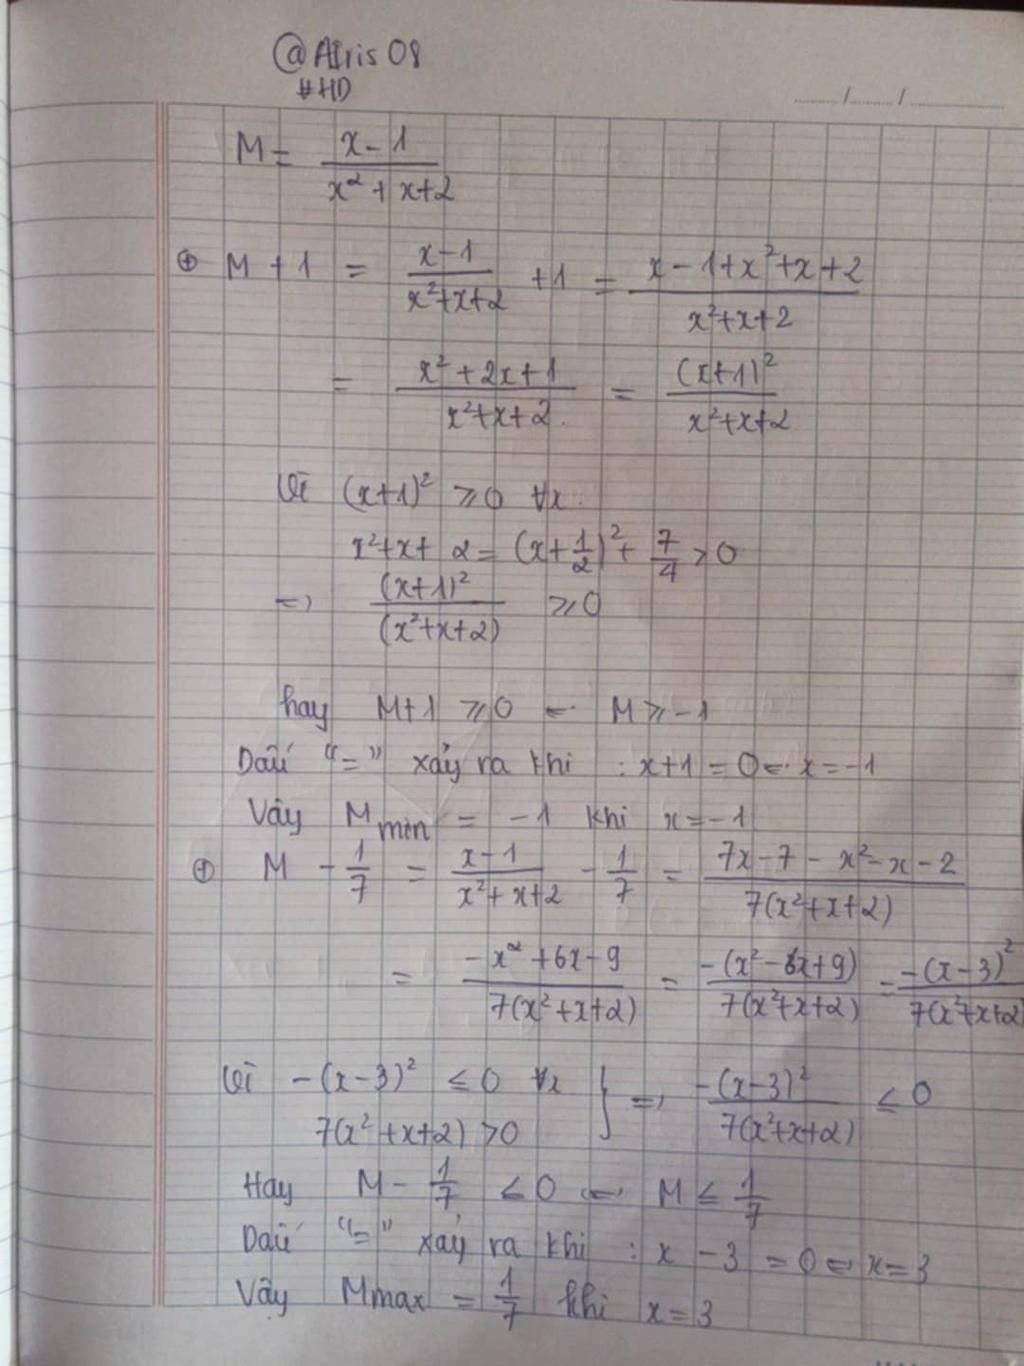 @Alris 08
#HD
....../....../............
M = \frac{x-1}{x²+x+2}
⊕ M + 1 = \frac{x-1}{x²+x+2} +1 = \frac{x-1+x²+x+2}{x²+x+2}
= \frac{x²+2x+1}{x²+x+2} = \frac{(x+1)²}{x²+x+2}
Vì (x+1)² ≥ 0 ∀x
x²+x+2 = (x+\frac{1}{2})² + \frac{7}{4} > 0
=> \frac{(x+1)²}{(x²+x+2)} ≥ 0
hay M+1 ≥ 0 <=> M ≥ -1
Dấu "=" xảy ra khi : x+1 = 0 <=> x = -1
Vậy M min = -1 khi x = -1
⊕ M - \frac{1}{7} = \frac{x-1}{x²+x+2} - \frac{1}{7} = \frac{7x-7-x²-x-2}{7(x²+x+2)}
= \frac{-x²+6x-9}{7(x²+x+2)} = \frac{-(x²-6x+9)}{7(x²+x+2)} = \frac{-(x-3)²}{7(x²+x+2)}
Vì -(x-3)² ≤ 0 ∀x
7(x²+x+2) > 0 } => \frac{-(x-3)²}{7(x²+x+2)} ≤ 0
Hay M - \frac{1}{7} ≤ 0 <=> M ≤ \frac{1}{7}
Dấu "=" xảy ra khi : x - 3 = 0 <=> x = 3
Vậy Mmax = \frac{1}{7} khi x = 3